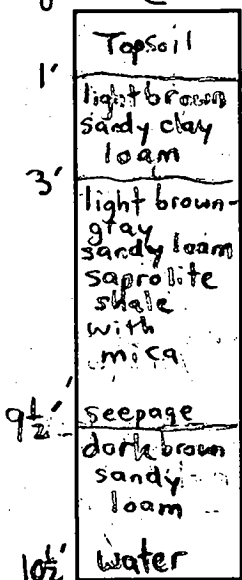 Topsoil
1'
light brown
sandy clay
loam
3'
light brown-
gray
sandy loam
saprolite
shale
with
mica
seepage
9½'
dark brown
sandy
loam
10½'
water